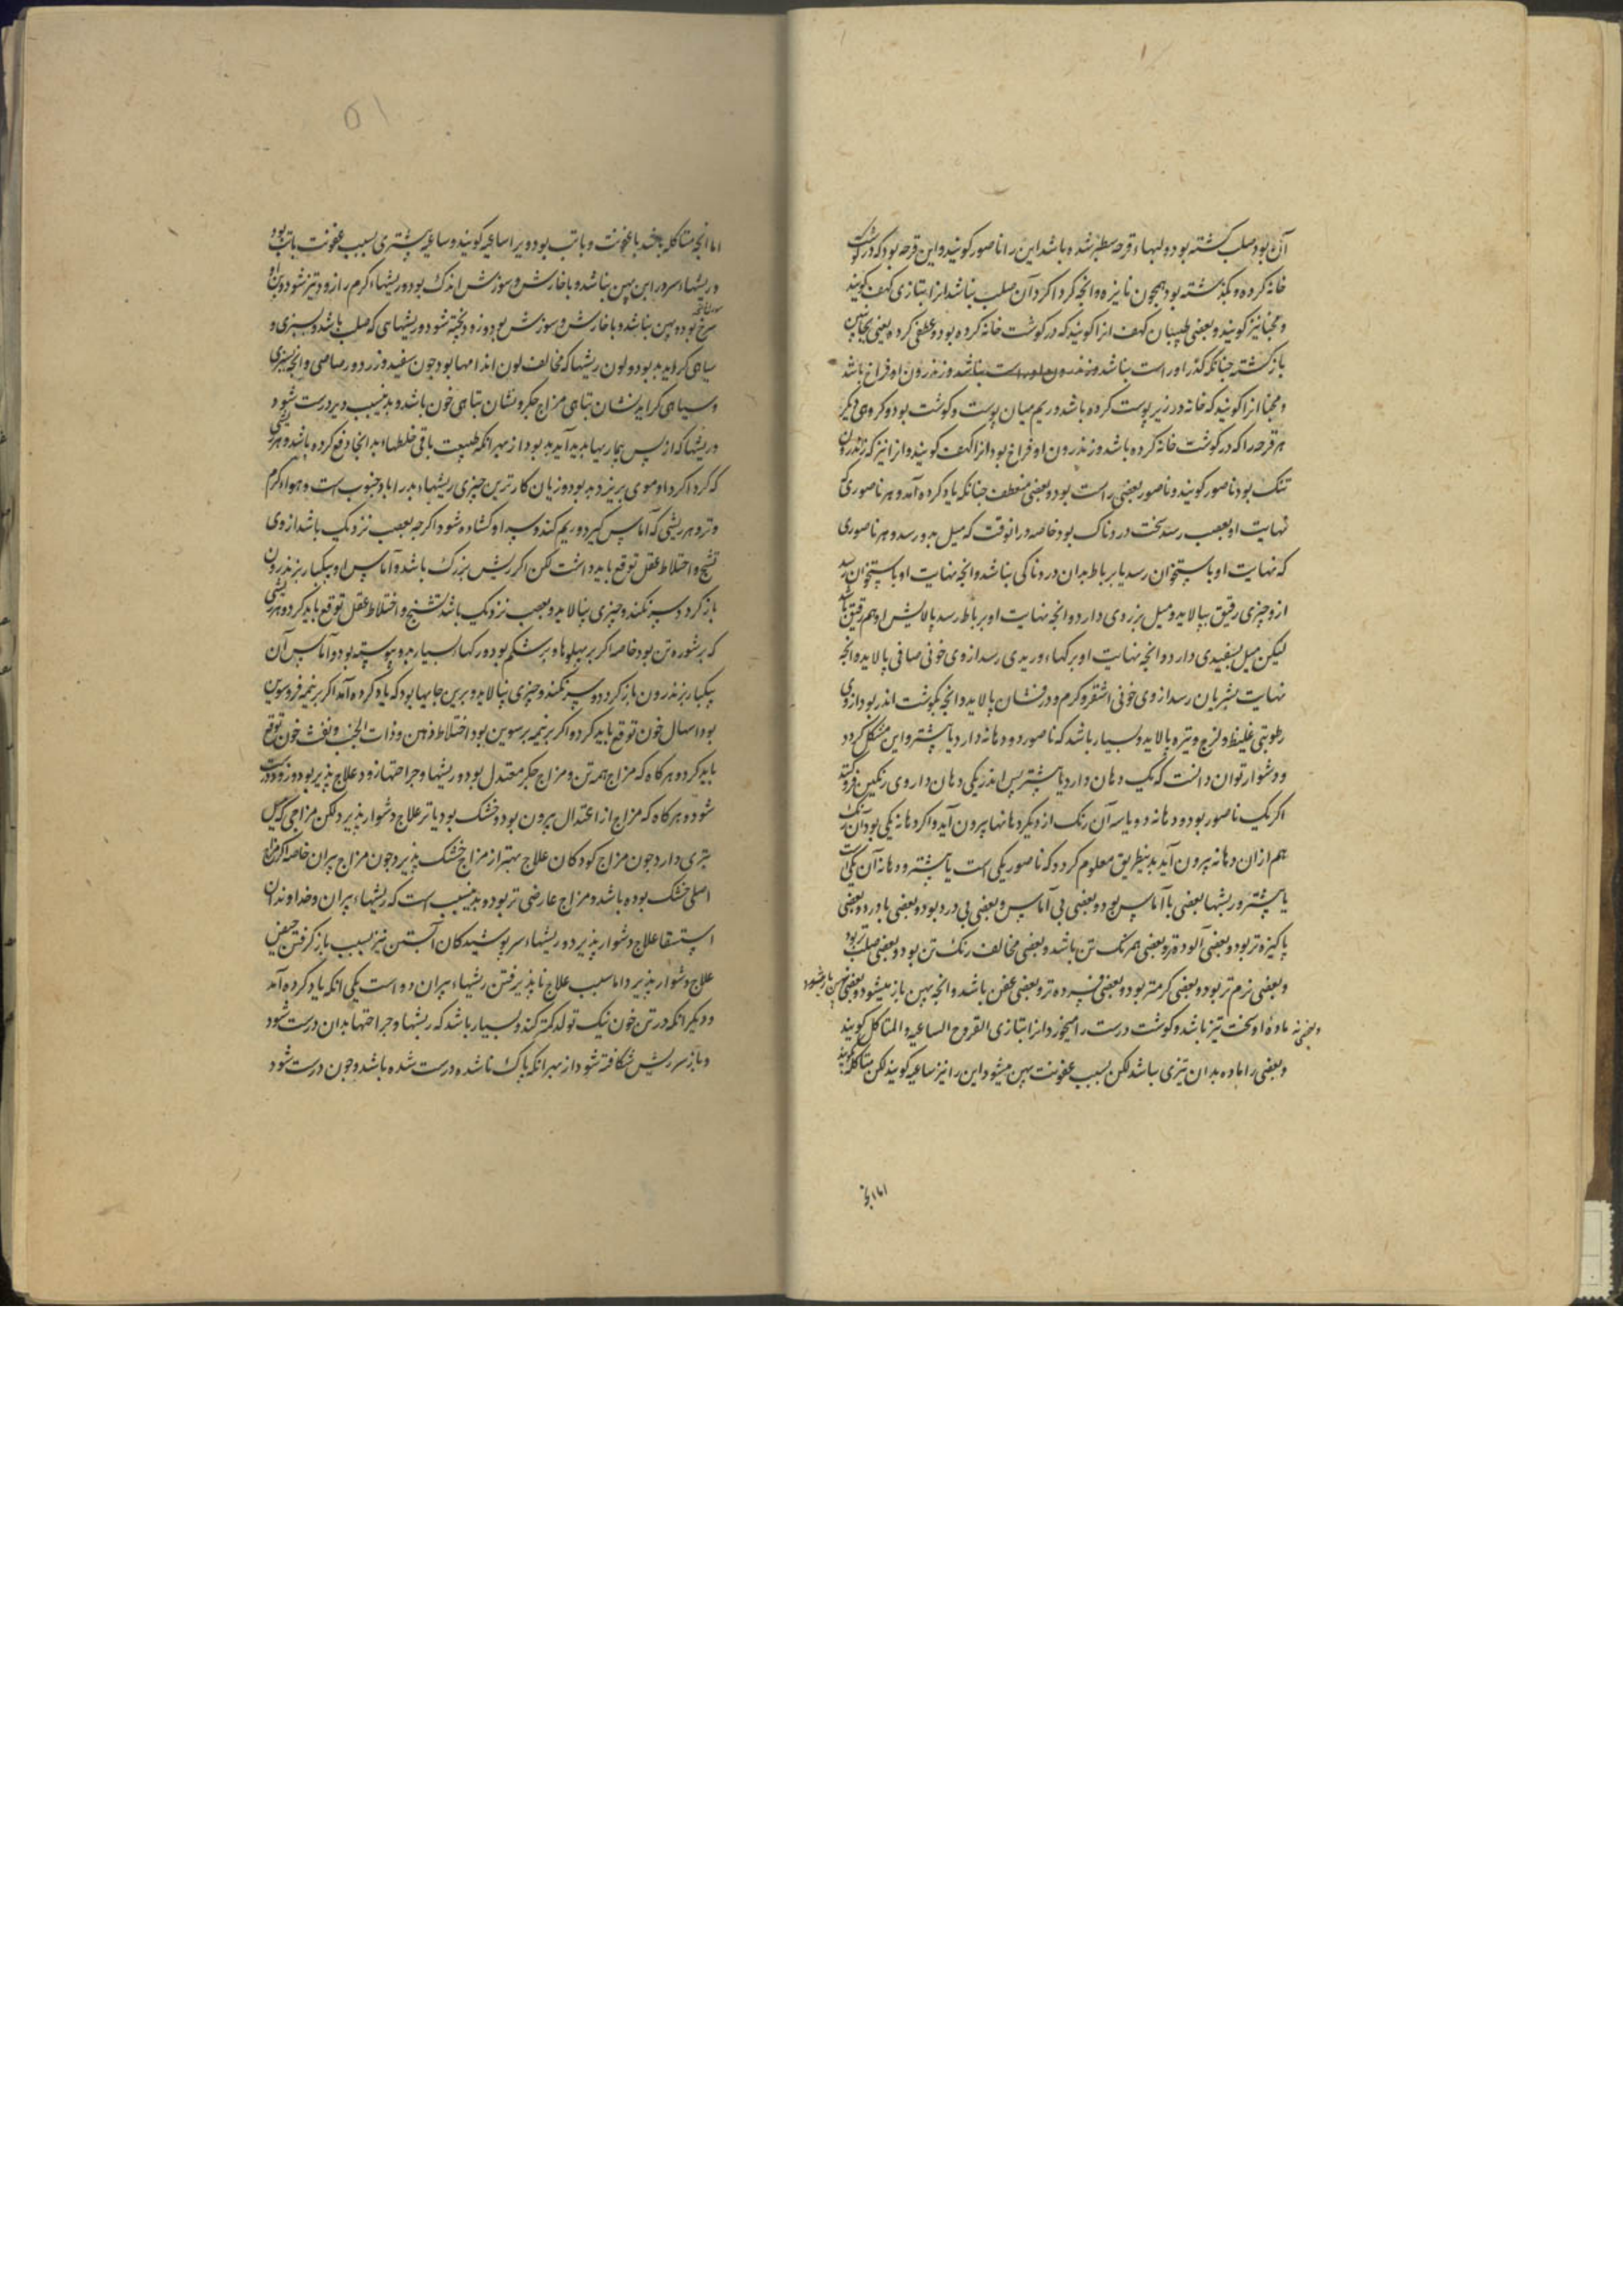 آن بود صلب کشته بود و لبهاء قرحه سطبر شده باشد این را ناصور کویند و این قرحه بود که در کوشت
خانه کرده و بکذشته بود همجون نایزه و انجه کرداکرد آن صلب نباشد انرا بتازی کهف کویند
و مخبا نیز کویند و بعضی طبیبان کهف انرا کویند که در کوشت خانه کرده بود و عطفی کرده یعنی بجانبی
باز کشته جنانکه کذر او راست نباشد و زندرون او فراخ باشد
و مخبا انرا کویند که خانه در زیر پوست کرده باشد و ریم میان پوست و کوشت بود و کروهی دیکر
هر قرحه را که در کوشت خانه کرده باشد و زندرون او فراخ بود انرا کهف کویند و انرا نیز که زندرون
تنک بود ناصور کویند و ناصور بعضی راست بود و بعضی منعطف جنانکه یاد کرده آمد و هر ناصوری که
نهایت او بعصب رسد سخت دردناک بود خاصه در انوقت که میل بدو رسد و هر ناصوری
که نهایت او باستخوان رسد یا برباط بدان دردناکی نباشد و انجه نهایت او باستخوان رسد
ازو جیزی رقیق بپالاید و میل بزردی دارد و انجه نهایت او برباط رسد پالایش او هم رقیق باشد
لیکن میل بسفیدی دارد و انجه نهایت او برکهاء وریدی رسد از وی خونی صافی پالاید و انجه
نهایت بشریان رسد از وی خونی اشقر و کرم و درفشان پالاید و انجه بکوشت اندر بود از وی
رطوبتی غلیظ و لزج و تیره پالاید و بسیار باشد که ناصور دو دهانه دارد یا بیشتر و این مشکل کردد
و دشوار توان دانست که یک دهان دارد یا بیشتر پس اندر یکی دهان داروی رنکین فروکنند
اکر یک ناصور بود و دهانه دو یا سه آن رنک از دیکر دهانها بیرون آید و اکر دهانه یکی بود آن رنک
هم ازان دهانه بیرون آید بدینطریق معلوم کردد که ناصور یکی است یا بیشتر و دهانه آن یکی است
یا بیشتر و ریشها بعضی با آماس بود و بعضی بی آماس و بعضی بی درد بود و بعضی با درد و بعضی
پاکیزه تر بود و بعضی آلوده تر و بعضی همرنک تن باشد و بعضی مخالف رنک تن بود و بعضی صلب تر بود
و بعضی نرم تر بود و بعضی کرمتر بود و بعضی فسرده تر و بعضی عفن باشد و انجه پهن باز میشود و بعضی پهن باز نشود
و بعضی نه ماده او سخت تیز باشد و کوشت درست را میخورد انرا بتازی القروح الساعیه و المتاکل کویند
و بعضی را ماده بدان تیزی نباشد لکن بسبب عفونت پهن میشود این را نیز ساعیه کویند لکن متاکله نکویند
اما انجه
اما انجه متاکله باشد با عفونت و با تب بود و ویرا ساعیه کویند و ساعیه بیشتری بسبب عفونت با تب بود
و ریشهاء سرد را این پهن نباشد و با خارش و سوزش اندک بود و ریشهاء کرم را زود تیز شود و بن او
سرخ بود و پهن نباشد و با خارش و سوزش بود و زود پخته شود و ریشهایی که صلب باشد و بسبزی و
سیاهی کراید بد بود و لون ریشها که مخالف لون اندامها بود جون سفید و زرد و رصاصی و انجه بسبزی
و سیاهی کراید نشان تباهی مزاج جکر و نشان تباهی خون باشد و بدینسبب دیر درست شود
و ریشها که از پس بیماریها بدید آید بد بود از بهر انکه طبیعت باقی خلطهاء بد انجا دفع کرده باشد و هر ریشی
که کرداکرد او موی بریزد بد بود و زیان کارترین جیزی ریشهاء بد را باد جنوب است و هواء کرم
و تر و هر ریشی که آماس کیرد و ریم کند و سر او کشاده شود اکرجه بعصب نزدیک باشد از وی
تشنج و اختلاط عقل توقع باید داشت لکن اکر ریش بزرک باشد و آماس او بیکبار بزندرون
باز کردد و سر نکند و جیزی نپالاید و بعصب نزدیک باشد تشنج و اختلاط عقل توقع باید کرد و هر ریشی
که بر شوره تن بود خاصه اکر بر پهلوها و بر شکم بود و رکهاء بسیار بدو پیوسته بود و آماس آن
بیکبار بزندرون باز کردد و سر نکند و جیزی نپالاید و برین جایها بود که یاد کرده آمد اکر بر نیمه فروسوین
بود اسهال خون توقع باید کرد و اکر بر نیمه برسوین بود اختلاط ذهن و ذات الجنب و نفث خون توقع
باید کرد و هرکاه که مزاج همه تن و مزاج جکر معتدل بود و ریشها و جراحتها زود علاج پذیر بود و زود درست
شود و هرکاه که مزاج از اعتدال بیرون بود و خشک بود یا تر علاج دشوار پذیرد و لکن مزاجی که میل
بتری دارد جون مزاج کودکان علاج بهتر از مزاج خشک پذیرد جون مزاج پیران خاصه اکر مزاج
اصلی خشک بوده باشد و مزاج عارضی تر بود و بدینسبب است که ریشهاء پیران و خداوندان
استسقا علاج دشوار پذیرد و ریشهاء سر پوشیدکان آبستن نیز بسبب باز کرفتن حیض
علاج دشوار پذیرد اما سبب علاج ناپذیرفتن ریشهاء پیران دو است یکی انکه یاد کرده آمد
و دیکر انکه در تن خون نیک تولد کمتر کند و بسیار باشد که ریشها و جراحتها بدان درست شود
و باز سر ریش شکافته شود از بهر انکه پاک ناشده درست شده باشد و جون درست شود